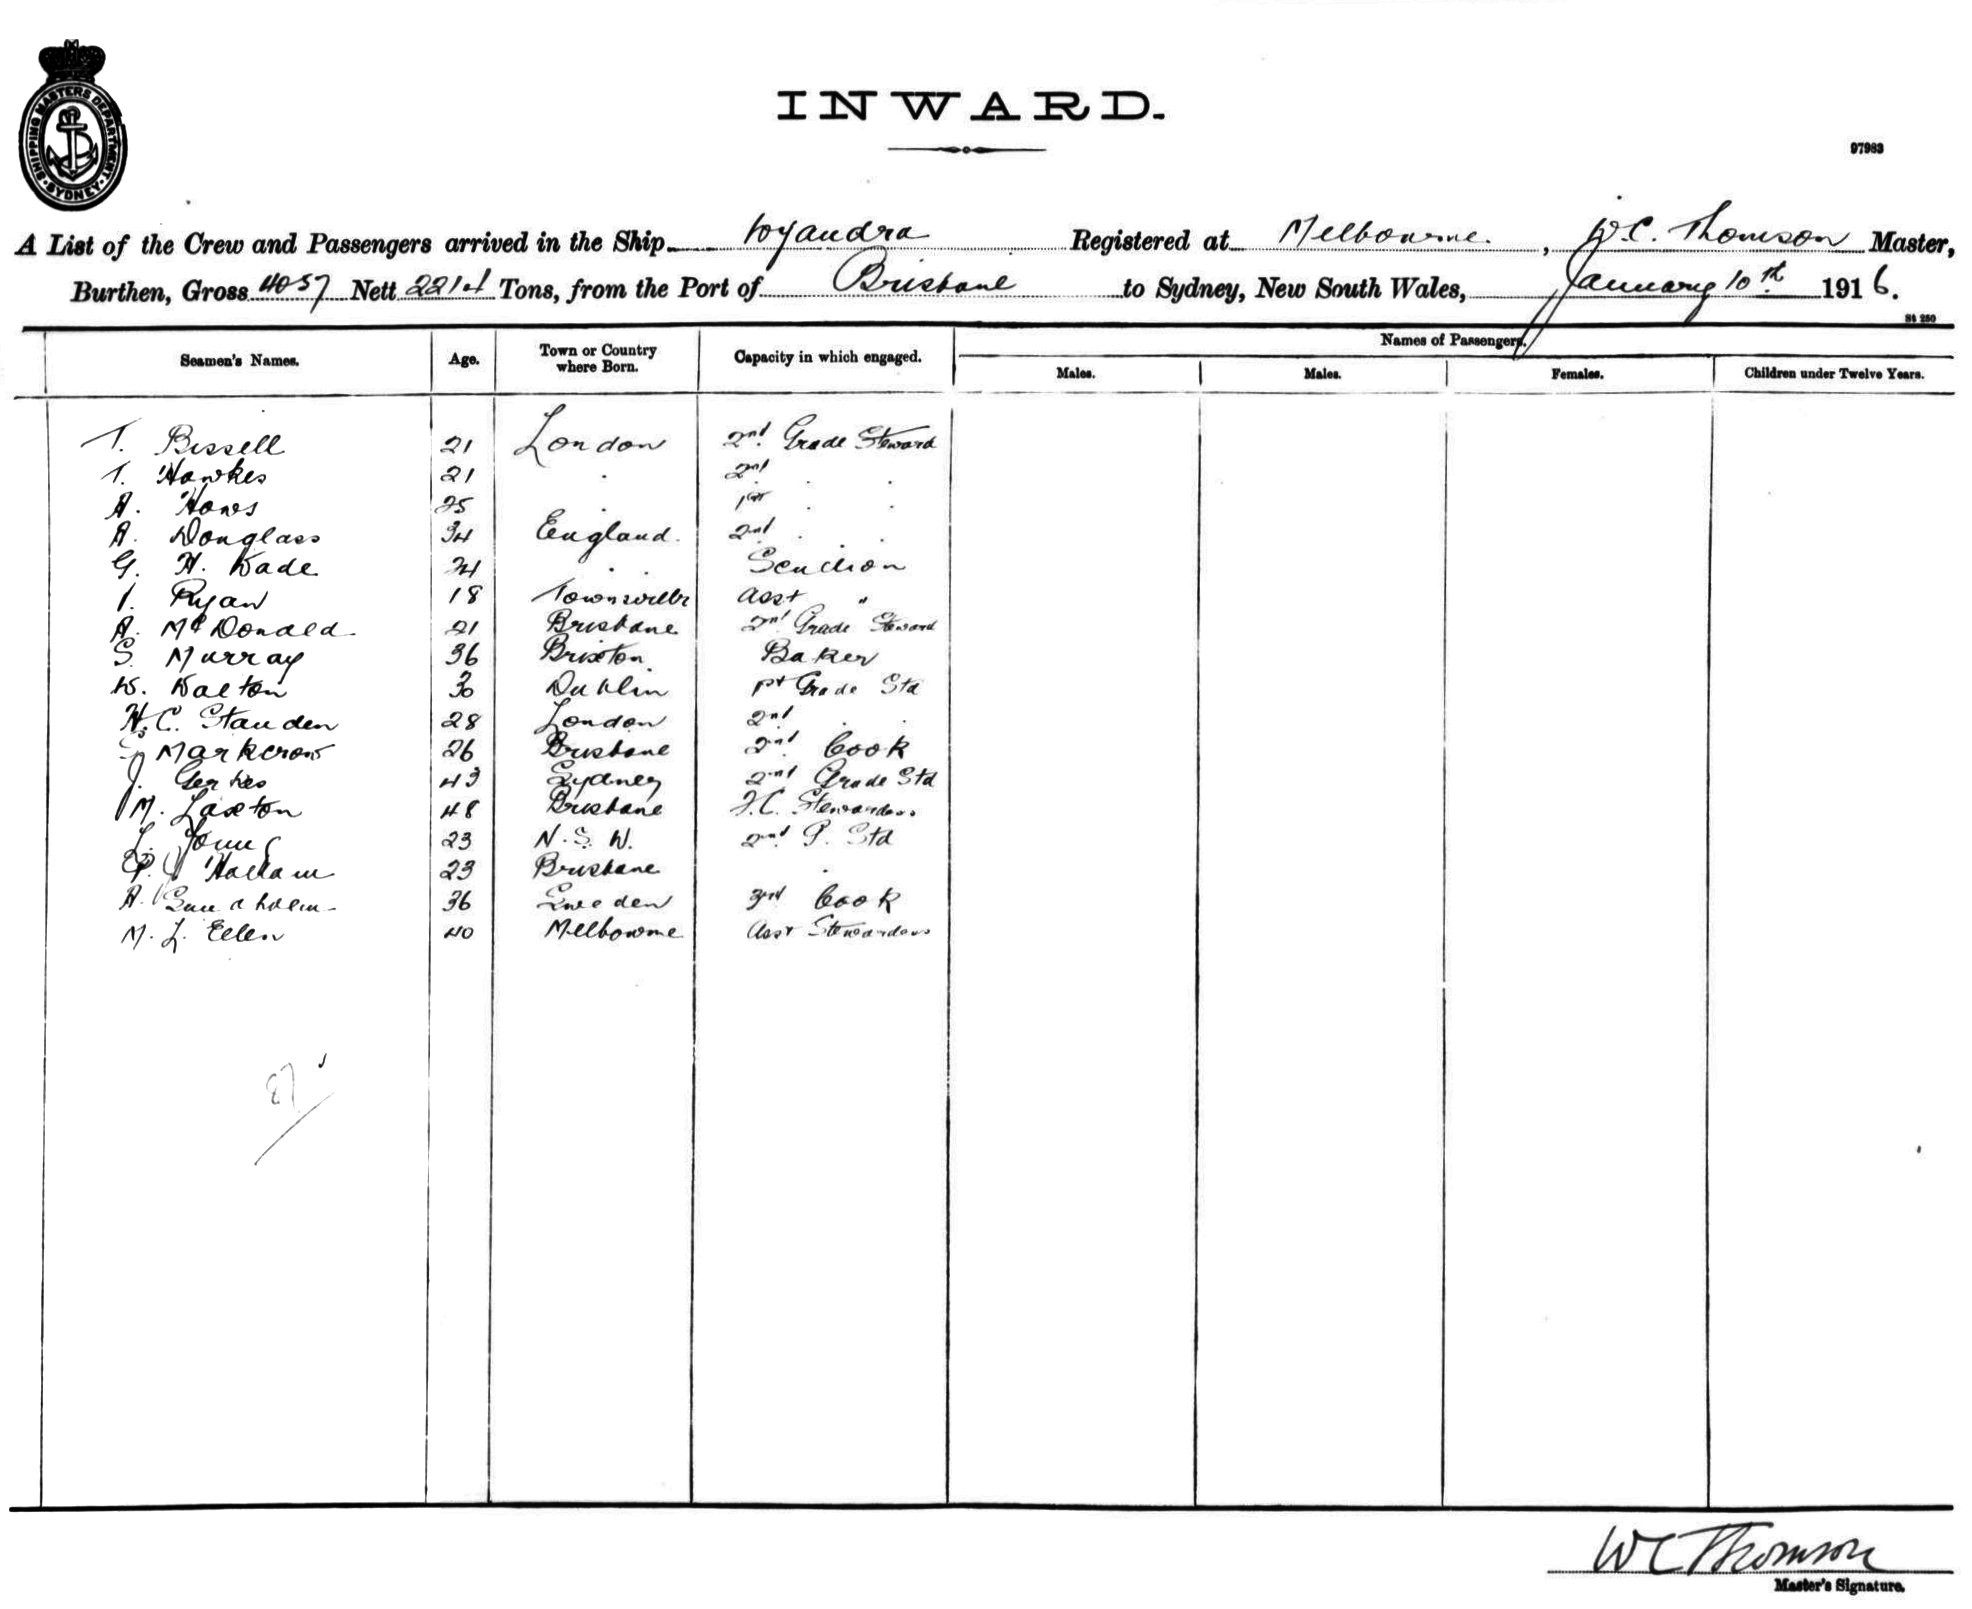 SHIPPING MASTERS DEPARTMENT. SYDNEY
INWARD.
97983
A List of the Crew and Passengers arrived in the Ship Wyandra Registered at Melbourne. , W.C. Thomson Master,
Burthen, Gross 4057 Nett 2214 Tons, from the Port of Brisbane to Sydney, New South Wales, January 10th 1916.
St 250
Seamen's Names. Age. Town or Country where Born. Capacity in which engaged. Names of Passengers.
Males. Males. Females. Children under Twelve Years.
T. Bissell 21 London 2nd Grade Steward
T. Hawkes 21 . 2nd . .
A. Haws 25 . 1st . .
A. Douglass 34 England. 2nd . .
G. H. Wade 24 . . Scullion
Ryan 18 Townsville Asst "
A. McDonald 21 Brisbane 2nd Grade Steward
S. Murray 36 Brixton Baker
W. Walton 30 Dublin 1st Grade Std
H. C. Standen 28 London 2nd . .
Markcrow 26 Brisbane 2nd Cook
J. Gerkes 43 Sydney 2nd Grade Std
M. Laxton 48 Brisbane F.C. Stewardess
L. Young 23 N.S.W. 2nd G. Std
Hallam 23 Brisbane .
A. 36 Sweden 3rd Cook
M. L. Ellen 40 Melbourne Asst Stewardess
87
WC Thomson
Master's Signature.